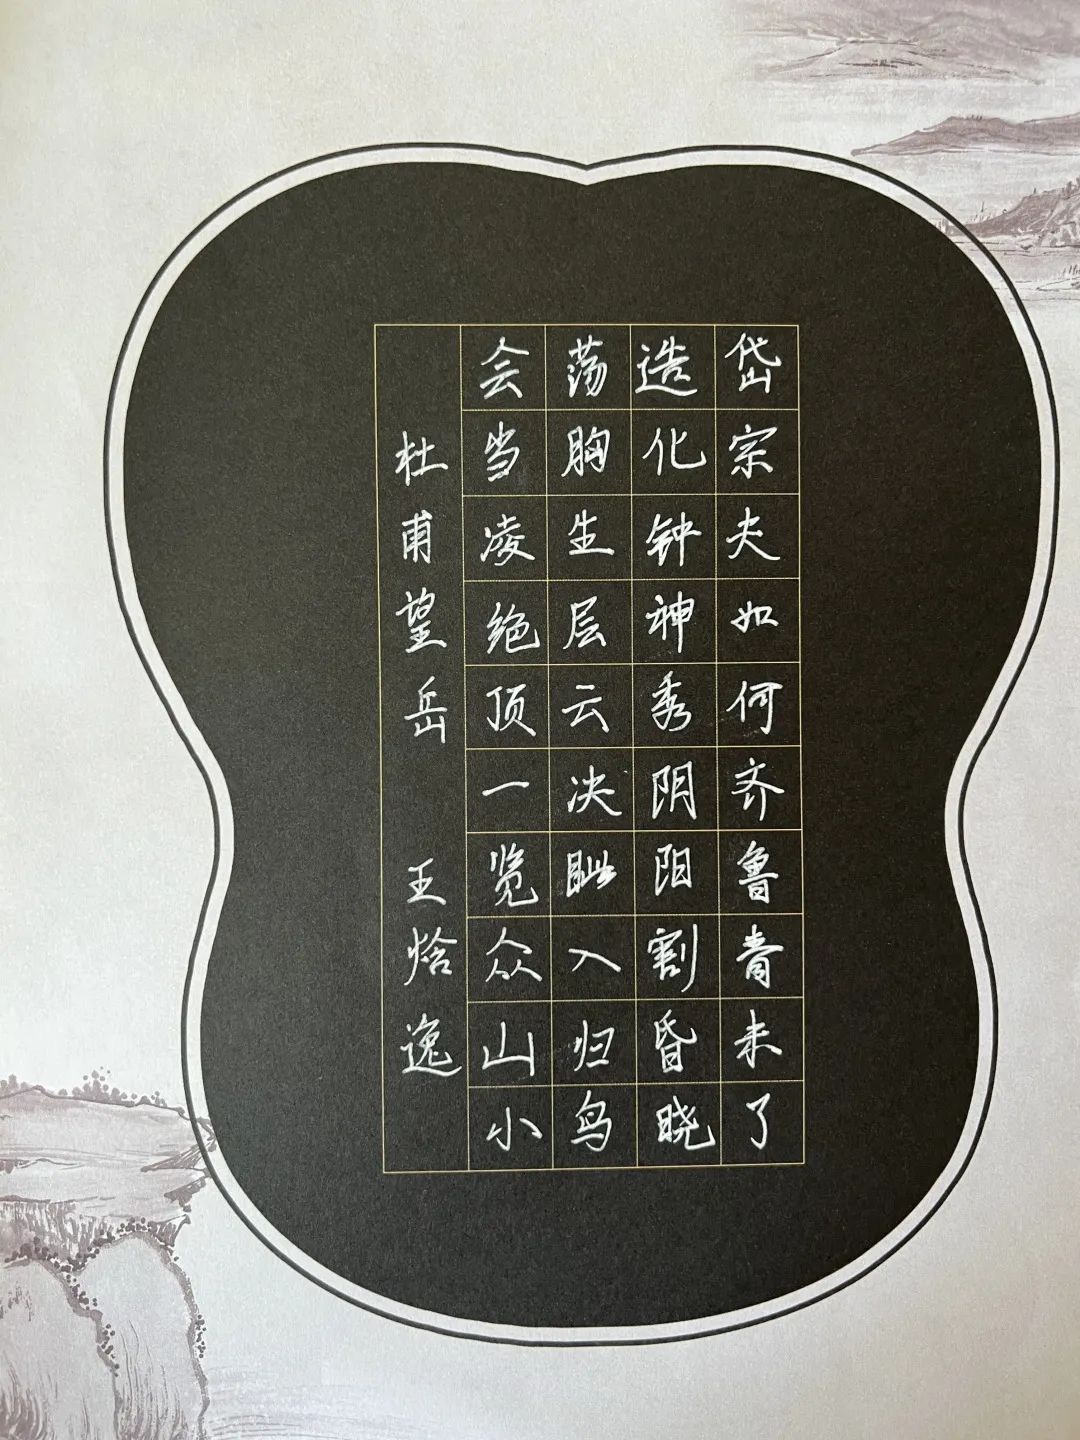 岱宗夫如何齐鲁青未了
造化钟神秀阴阳割昏晓
荡胸生层云决眦入归鸟
会当凌绝顶一览众山小
杜甫望岳 王焓逸